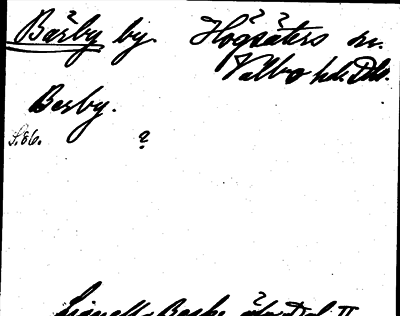 Bärby by. Högsäters sn.
Valbo hd. Dls.
Berby.
S.86. ?
Lignell, Beskr. Dal II